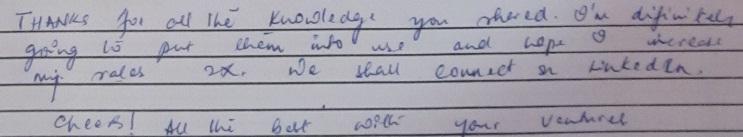 THANKS for all the knowledge you shared. I'm difinitely
going to put them into use and hope I increase
my sales 2x. We shall connect on LinkedIn.
Cheers! All the best with your ventures